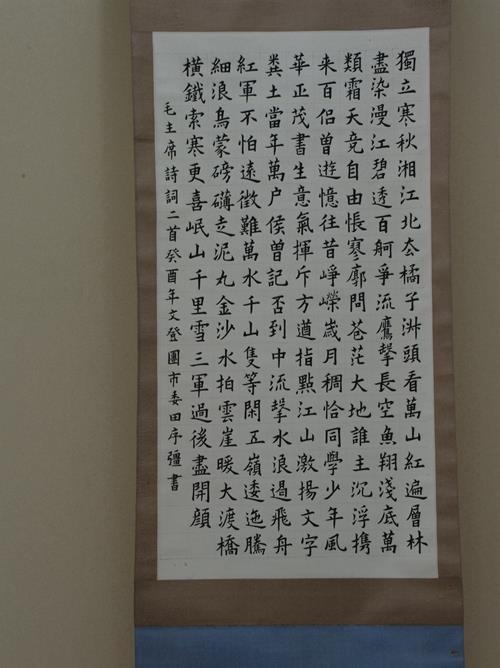 獨立寒秋湘江北去橘子洲頭看萬山紅遍層林
盡染漫江碧透百舸爭流鷹擊長空魚翔淺底萬
類霜天竞自由悵寥廓問苍茫大地誰主沉浮携
来百侣曽遊憶往昔崢嶸歲月稠恰同學少年風
華正茂書生意氣揮斥方遒指點江山激揚文字
粪土當年萬户侯曽記否到中流擊水浪遏飛舟
紅軍不怕遠徵難萬水千山隻等閑五嶺逶迤騰
細浪烏蒙磅礴走泥丸金沙水拍雲崖暖大渡橋
橫鐵索寒更喜岷山千里雪三軍過後盡開顔
毛主席詩詞二首癸酉年文登團市委田序彊書